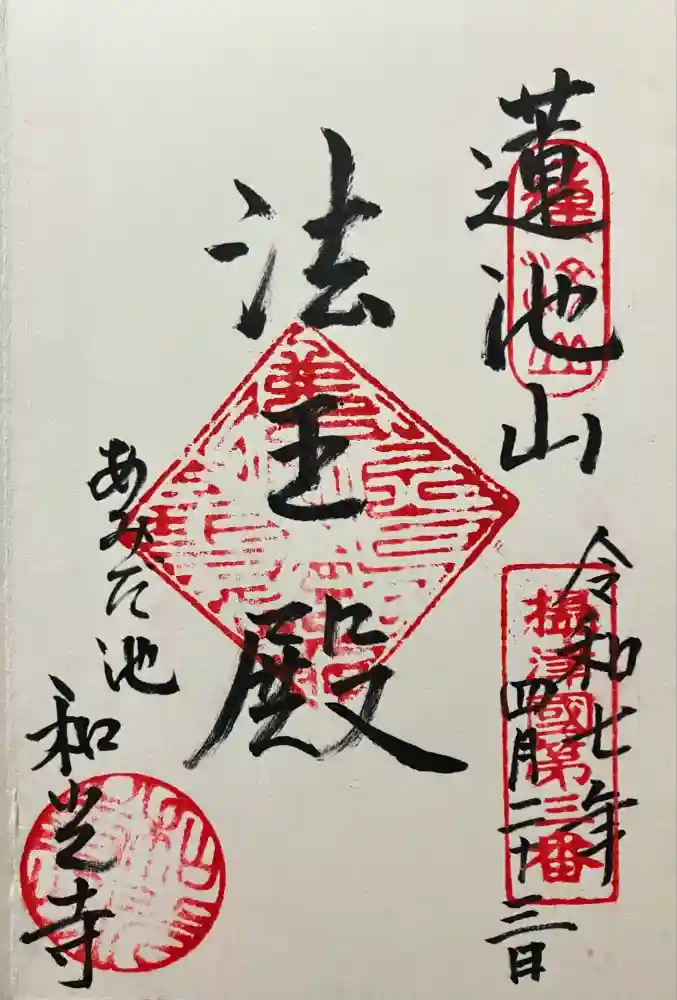 蓮池山
令和七年
四月二十三日
攝津國第三番
法王殿
あみだ池
和光寺